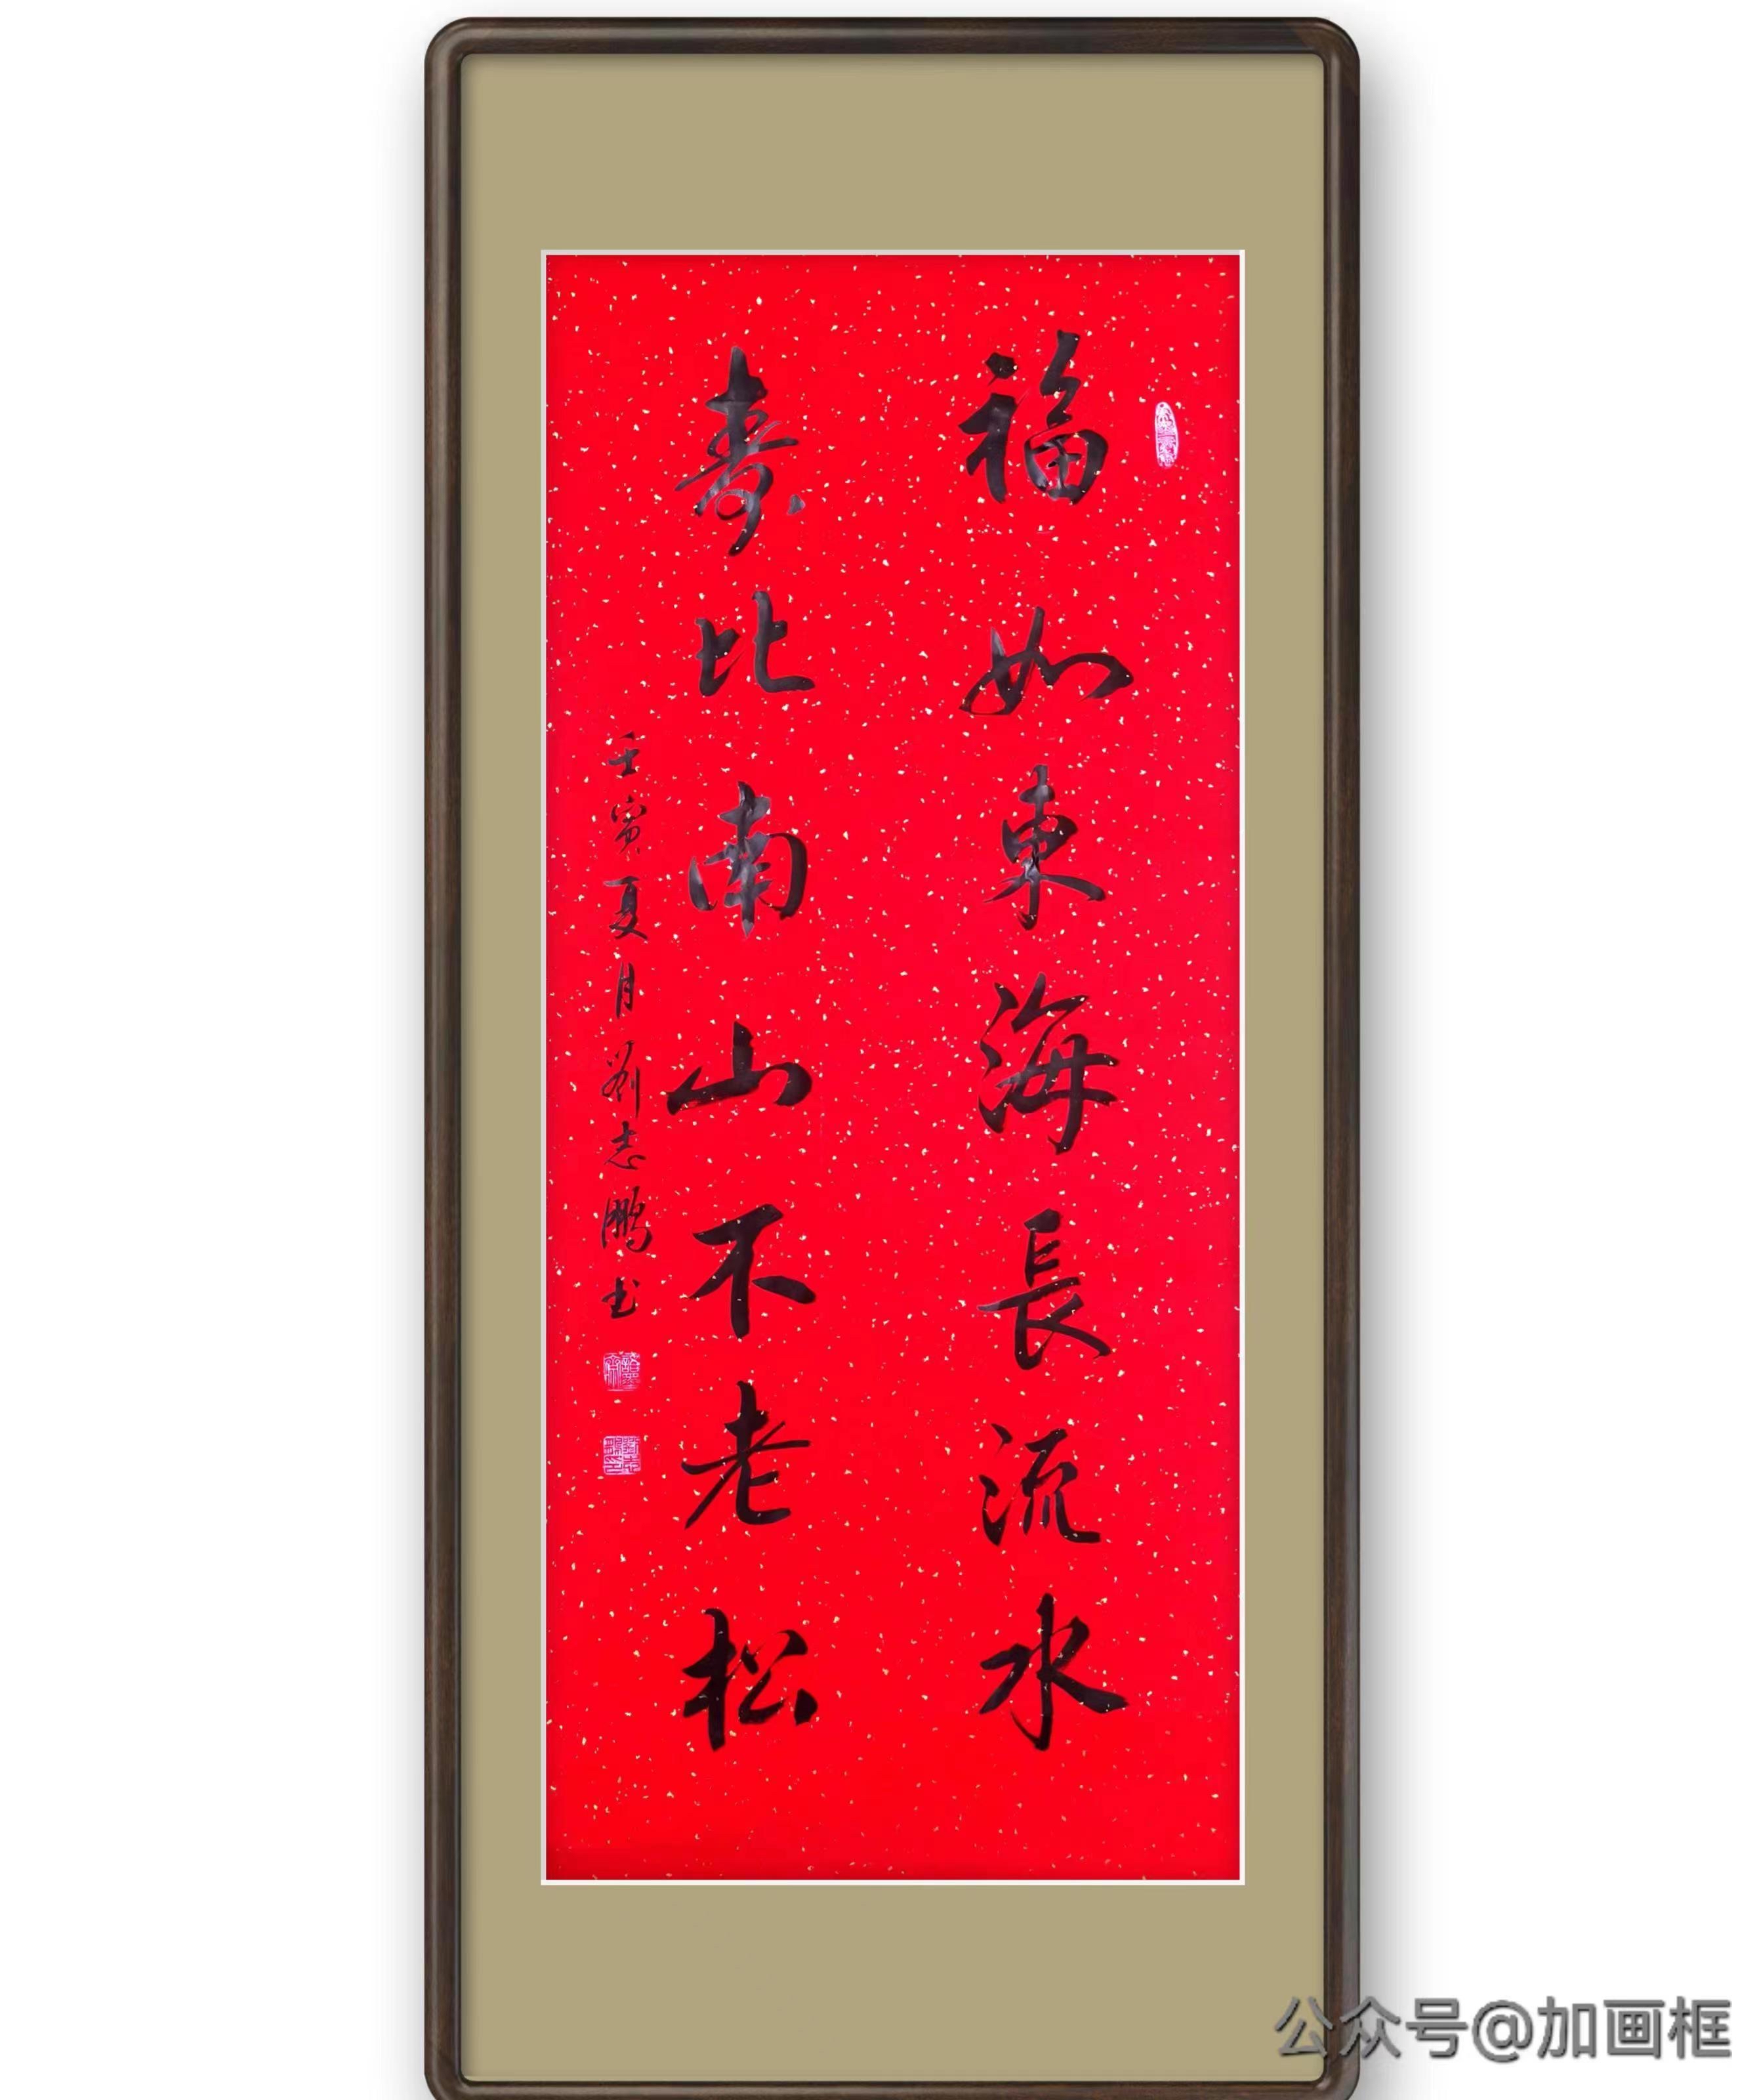 福如東海長流水
壽比南山不老松
壬寅夏月劉志鵬书
公众号@加画框